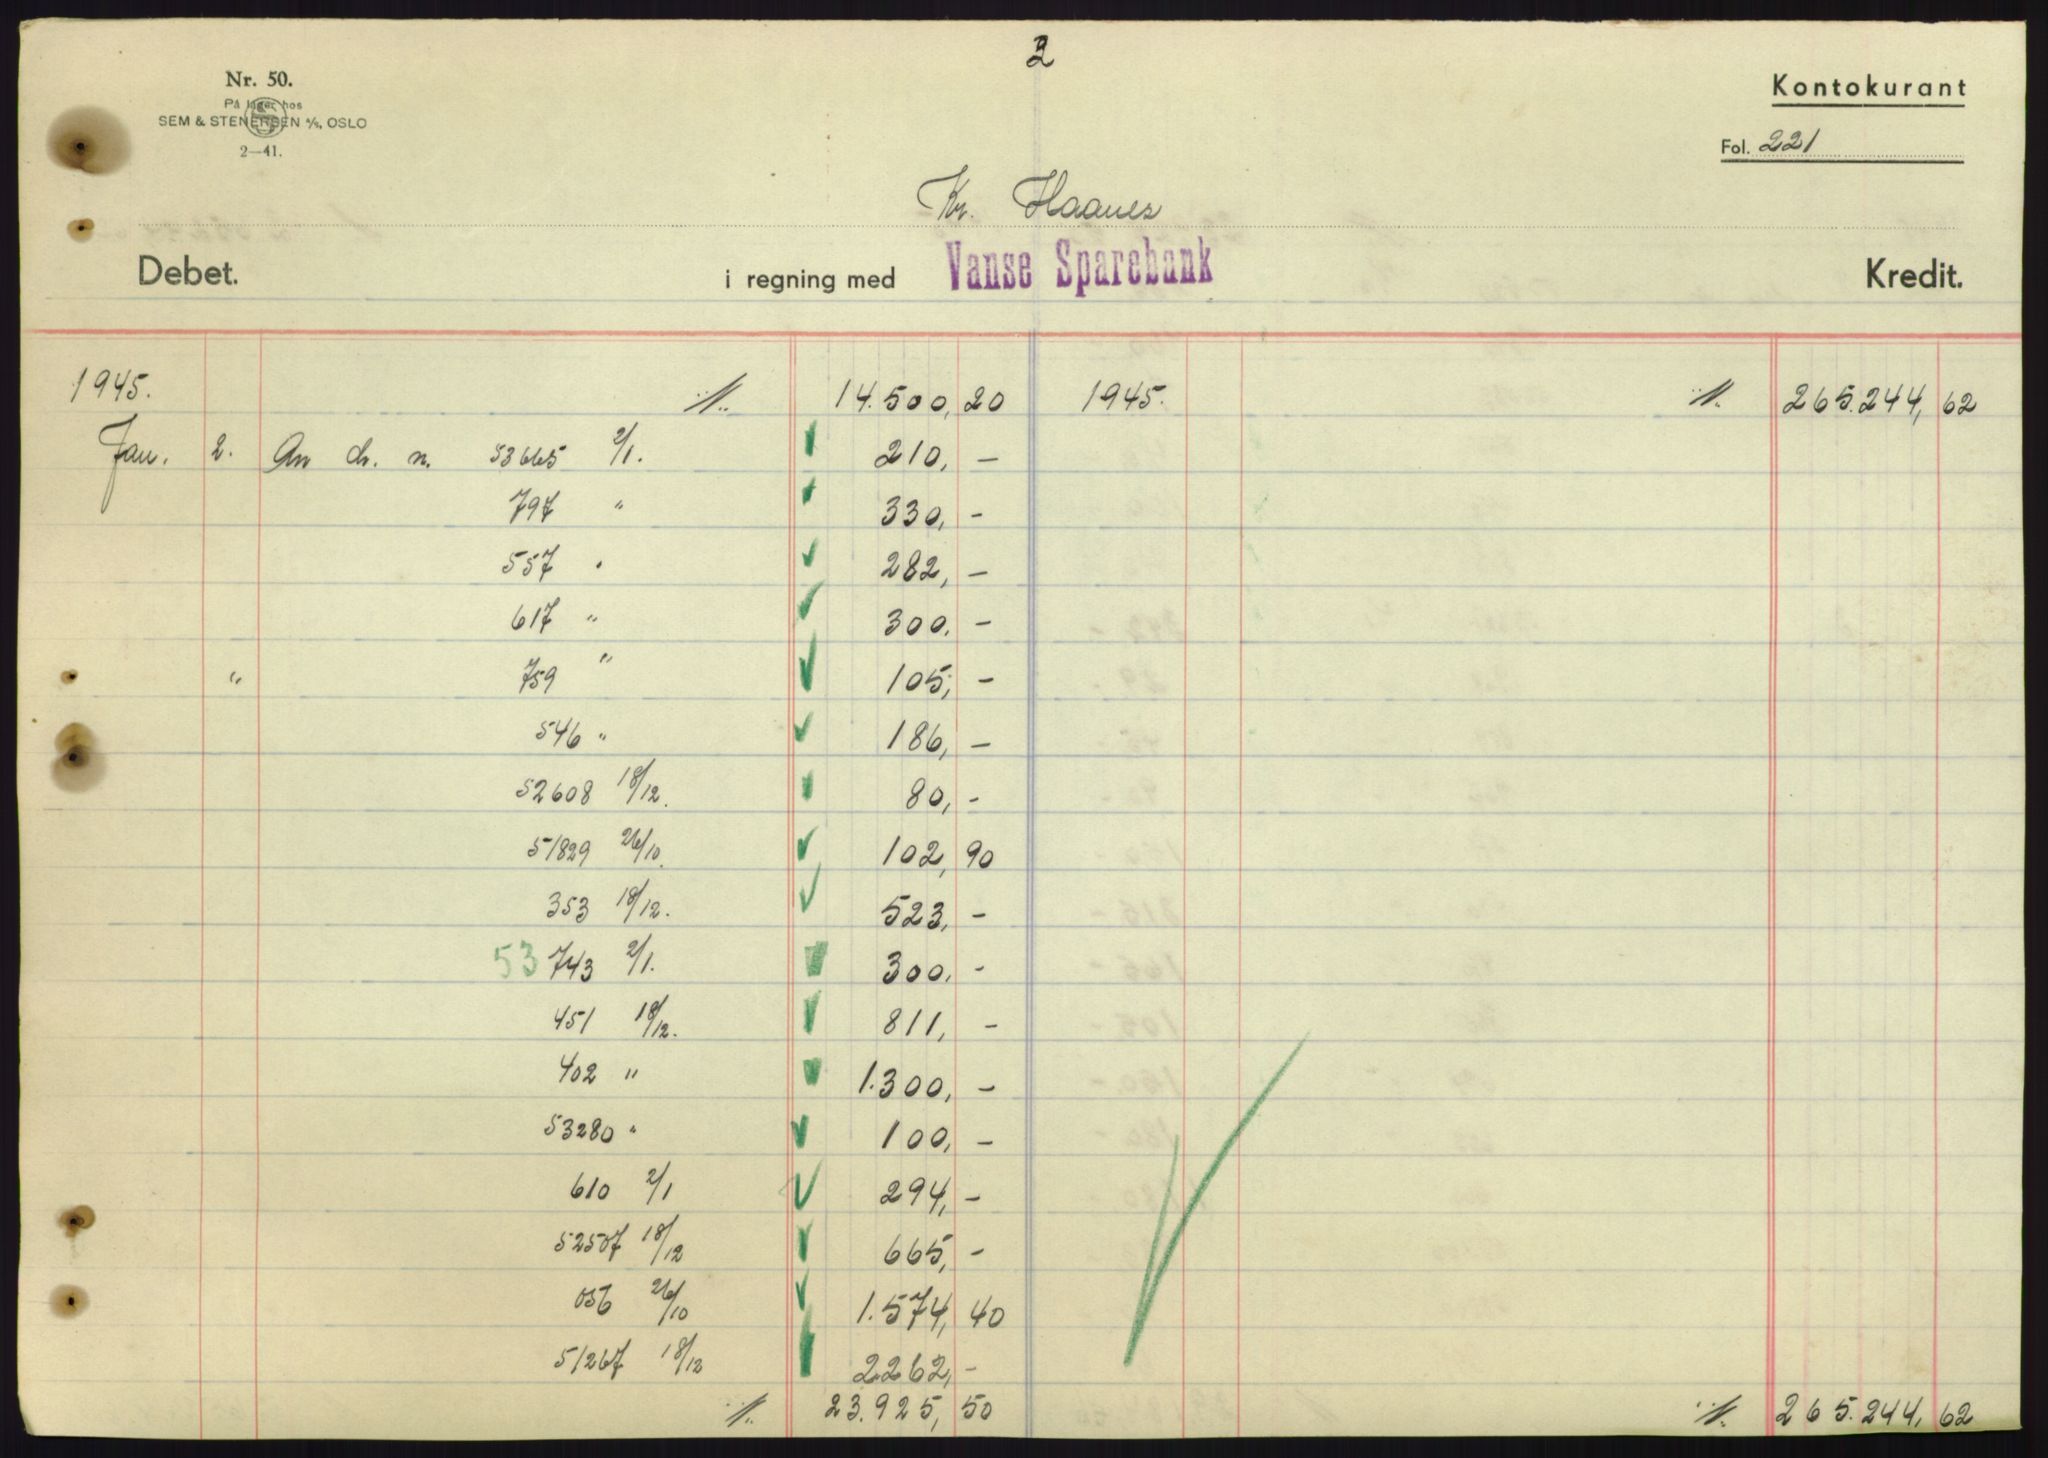 2
Nr. 50.
På lager hos
SEM & STENERSEN A/S, OSLO
2—41.
Kontokurant
Fol. 221
Kr. Haanes
Debet. i regning med Vanse Sparebank Kredit.
1945. 14.500,20 1945. 265.244,62
Jan. 2. An ch. n. 53665 2/1. 210,—
797 " 330,-
557 " 282,—
617 " 300.-
" 759 " 105,-
546 " 186,—
52608 18/12. 80,-
51829 26/10. 102,90
353 18/12. 523,-
53 743 2/1. 300,-
451 18/12. 811,-
402 " 1.300,-
53280 " 100,-
610 2/1 294,-
52507 18/12 665,-
056 26/10 1.574,40
51267 18/12 2262,-
23.925,50 265.244,62